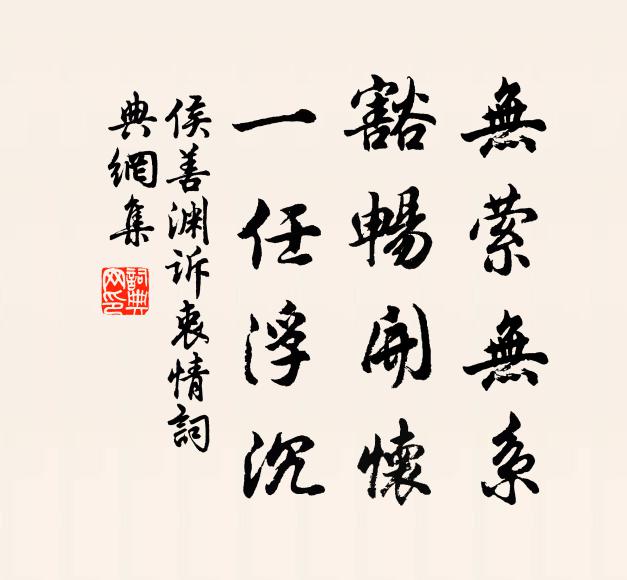 無萦無系
豁暢開懷
一任浮沉
侯善渊诉衷情詞
典網集
詞典
网印